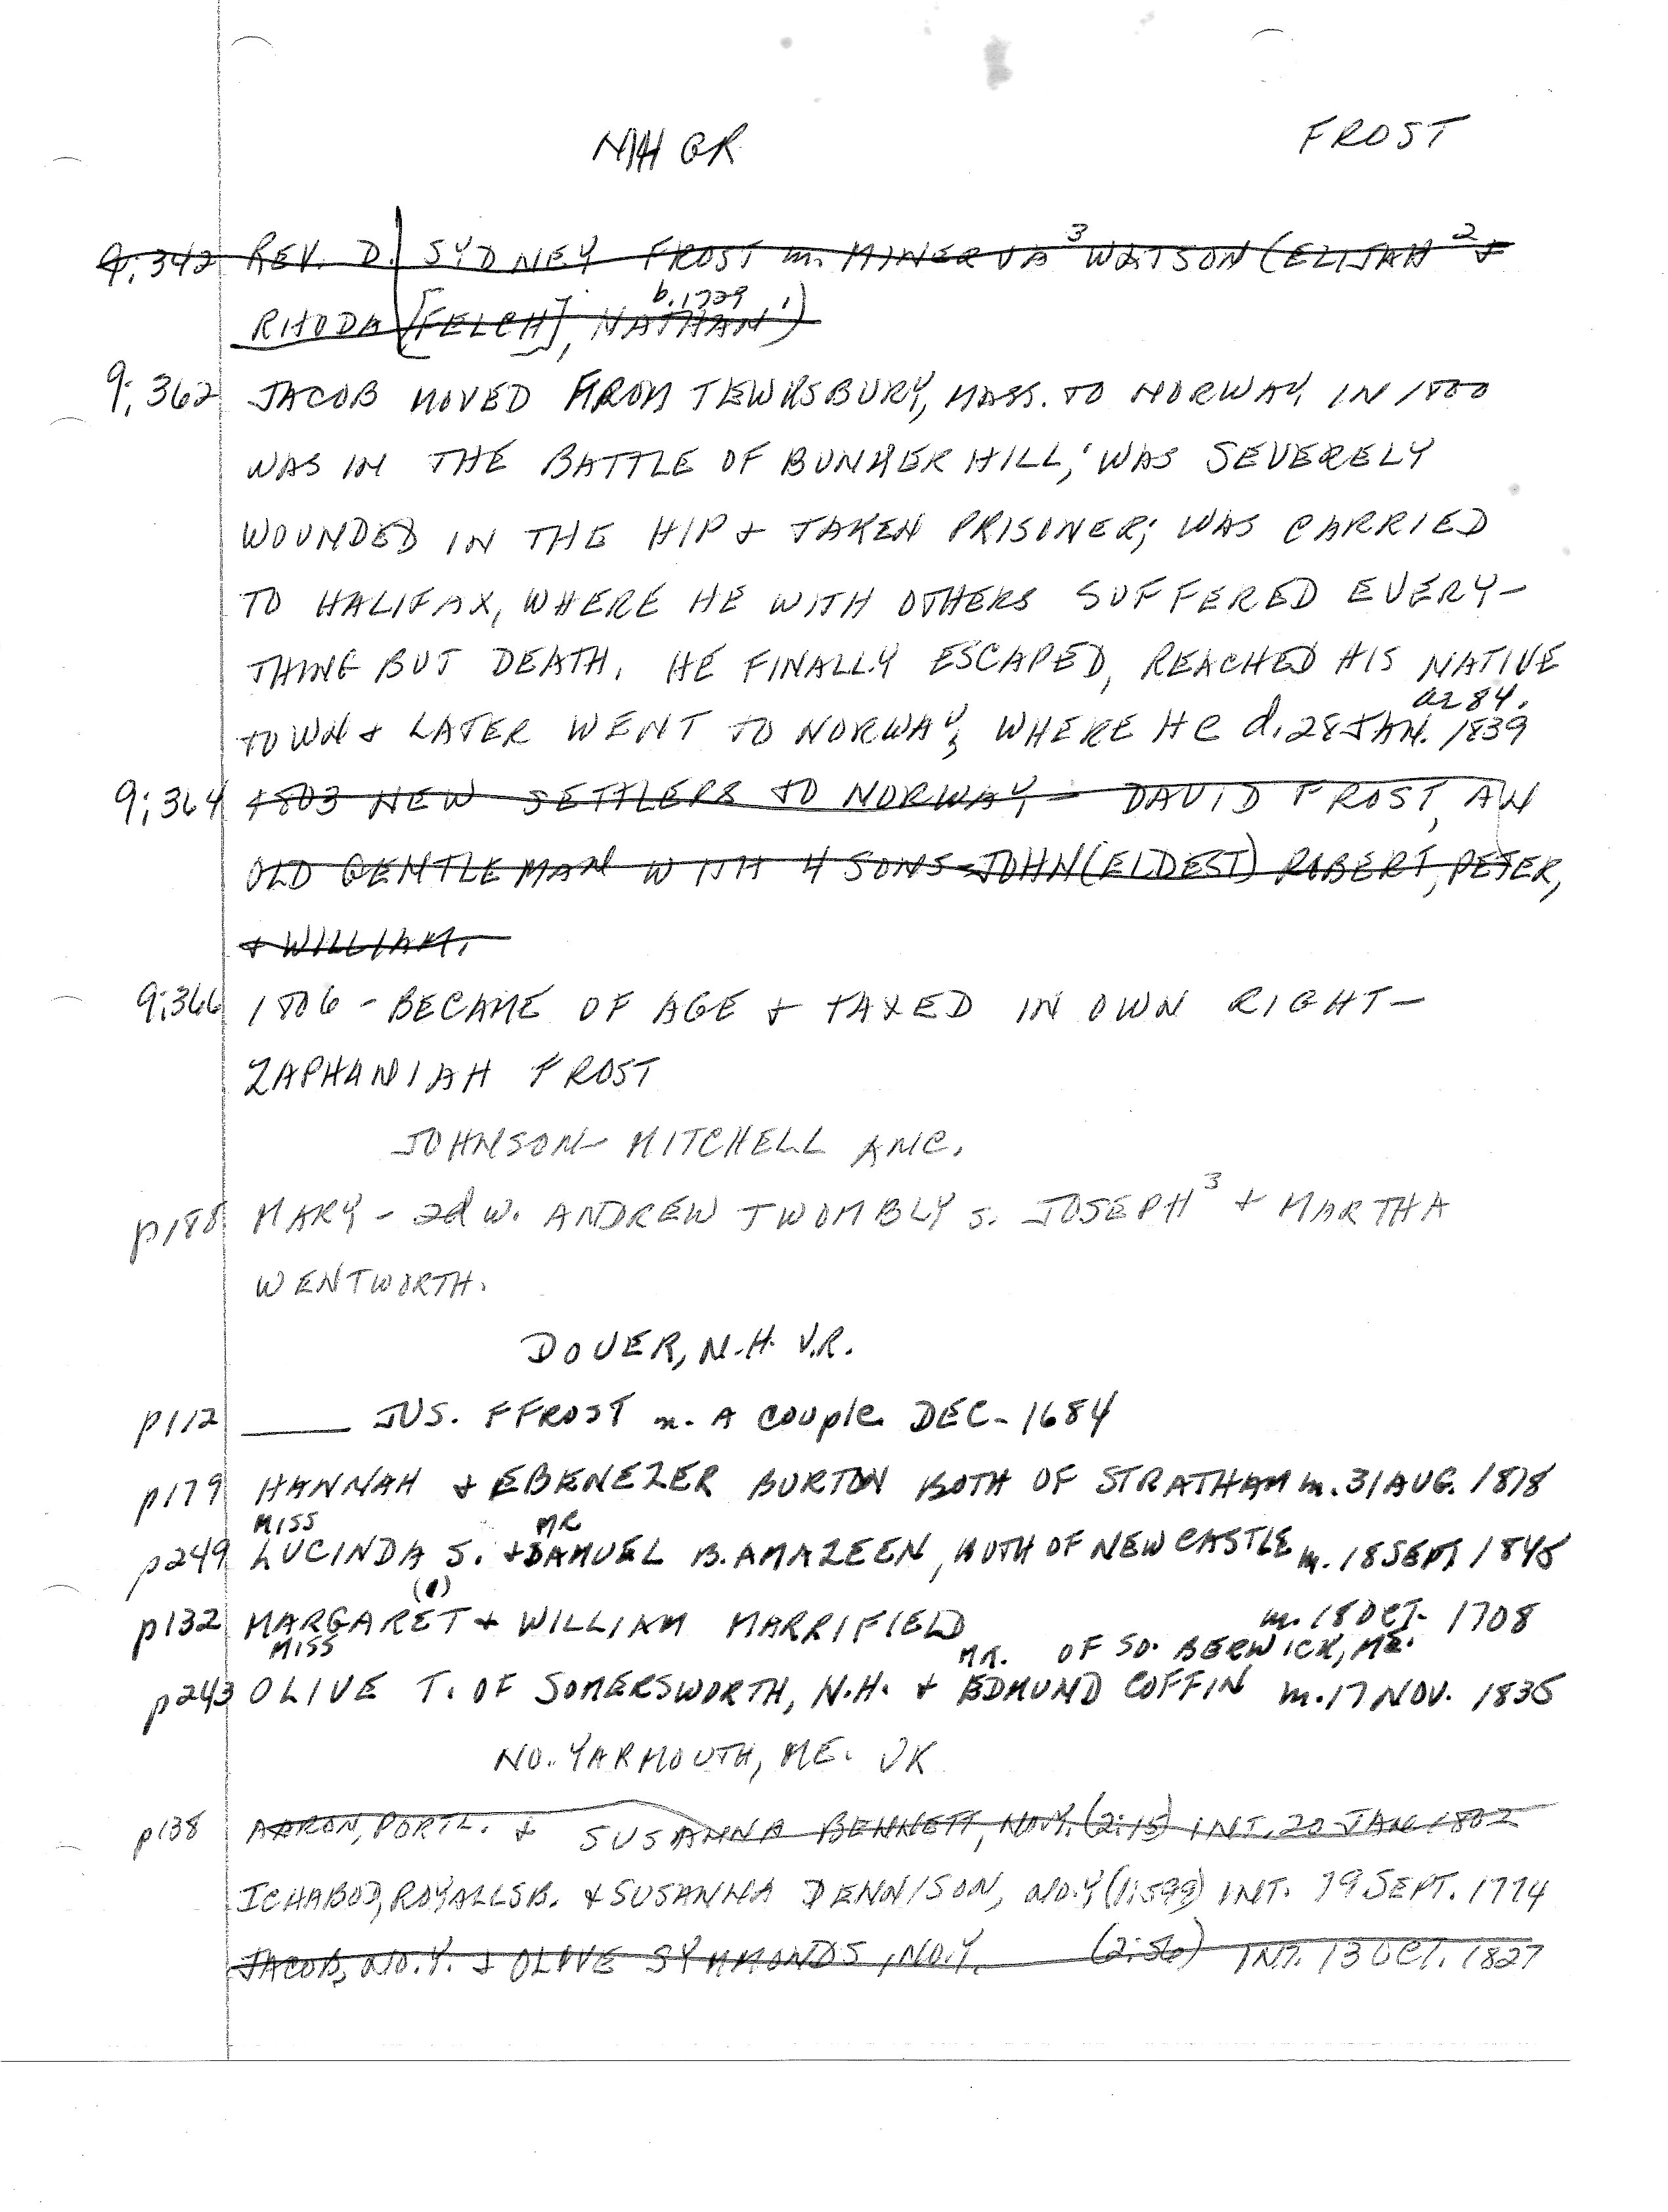 NHGR FROST
9:342 REV. D. SYDNEY FROST m. MINERVA 3 WATSON (ELIJAH 2 +
b. 1729
RHODA [FELCH], NATHAN 1)
9:362 JACOB MOVED FROM TEWKSBURY, MASS. TO NORWAY, IN 1800
WAS IN THE BATTLE OF BUNKER HILL; WAS SEVERELY
WOUNDED IN THE HIP + TAKEN PRISONER; WAS CARRIED
TO HALIFAX, WHERE HE WITH OTHERS SUFFERED EVERY-
THING BUT DEATH. HE FINALLY ESCAPED, REACHED HIS NATIVE
a 84.
TOWN + LATER WENT TO NORWAY, WHERE HE d. 28 JAN. 1839
9:364 1803 NEW SETTLERS TO NORWAY - DAVID FROST, AN
OLD GENTLEMAN WITH 4 SONS - JOHN (ELDEST) ROBERT, PETER,
+ WILLIAM.
9:366 1806 - BECAME OF AGE + TAXED IN OWN RIGHT -
ZAPHANIAH FROST
JOHNSON-MITCHELL ANC.
p188 MARY - 2d w. ANDREW TWOMBLY s. JOSEPH 3 + MARTHA
WENTWORTH.
DOVER, N.H. V.R.
p112 ____ JUS. FFROST m. A COUPLE DEC. 1684
p179 HANNAH + EBENEZER BURTON BOTH OF STRATHAM m. 31 AUG. 1818
MISS MR
p249 LUCINDA S. + SAMUEL B. AMAZEEN, BOTH OF NEW CASTLE m. 18 SEPT. 1845
p132 MARGARET + WILLIAM MARRIFIELD m. 18 OCT. 1708
MISS MR. OF SO. BERWICK, ME.
p243 OLIVE T. OF SOMERSWORTH, N.H. + EDMUND COFFIN m. 17 NOV. 1835
NO. YARMOUTH, ME. VR
p138 AARON, PORTL. + SUSANNA BENNETT, NO.Y. (2:15) INT. 20 JAN. 1802
ICHABOD, ROYALLSB. + SUSANNA DENNISON, NO.Y (1:599) INT. 19 SEPT. 1774
JACOB, NO.Y. + OLIVE SYMMONDS, NO.Y. (2:56) INT. 13 OCT. 1827